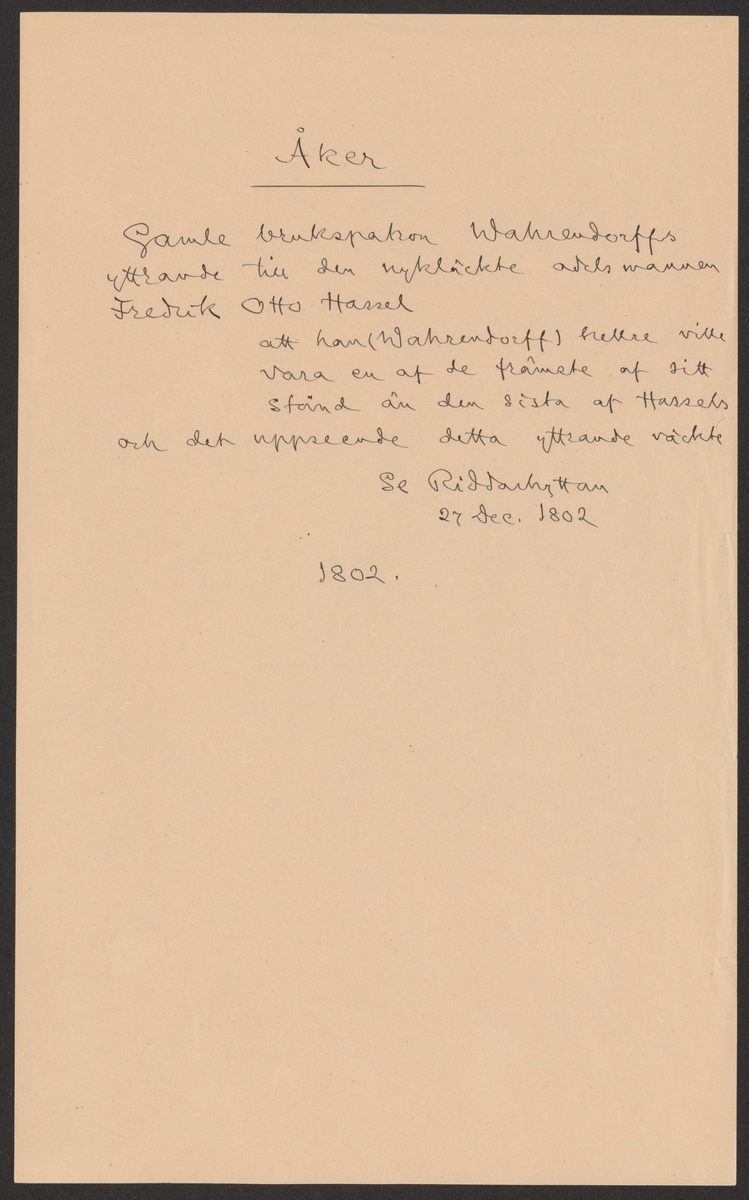 Åker
Gamle brukspatron Wahrendorffs
yttrande till den nykläckte adelsmannen
Fredrik Otto Hassel
att han (Wahrendorff) hellre ville
vara en af de främste af sitt
stånd än den sista af Hassels
och det uppseende detta yttrande väckte
Se Riddarhyttan
27 Dec. 1802
1802.